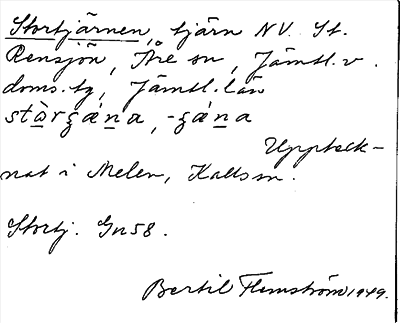 Stortjärnen, tjärn NV. St.
Rensjön, Åre sn, Jämtl. v.
doms.tg, Jämtl. län
Uppteck-
nat i Melen, Kalls sn.
Stortj. Gn 58.
Bertil Flemström 1949.